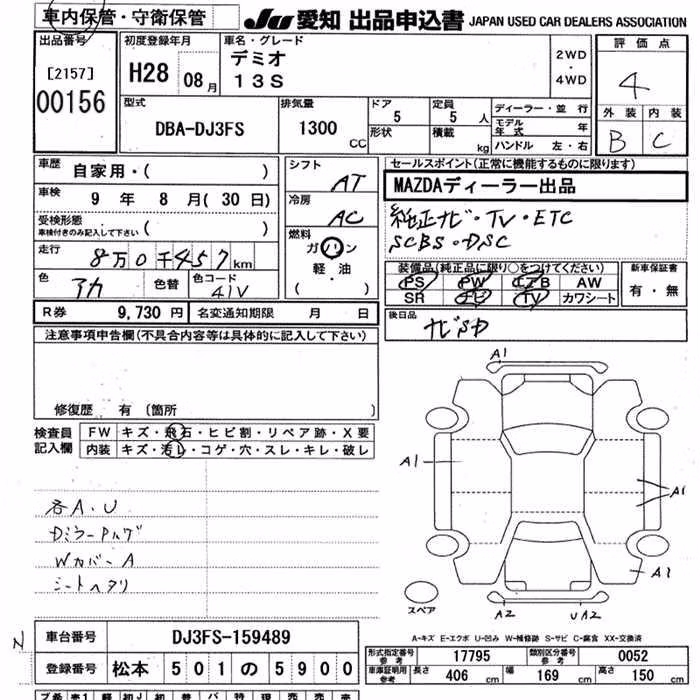 車内保管・守衛保管 JU 愛知 出品申込書 JAPAN USED CAR DEALERS ASSOCIATION
出品番号 初度登録年月 車名・グレード 評価点
[2157] H28 08月 デミオ 2WD
00156 13S ・ 4WD 4
型式 排気量 ドア 定員 ディーラー・並行 外装 内装
DBA-DJ3FS 1300 CC 5 5人 モデル年式 年 B C
形状 積載 kg ハンドル 左・右
車歴 自家用・( ) シフト AT セールスポイント(正常に機能するものに限ります)
車検 9年 8月(30日) 冷房 AC MAZDAディーラー出品
受検形態 車検付きのみ記入して下さい 純正ナビ・TV・ETC
走行 8万0千457km 燃料 ガソリン SCBS・DSC
色 アカ 色替 色コード 41V 軽油 ( )
装備品(純正品に限り○をつけてください) 新車保証書
PS PW エアB AW 有・無
SR ナビ TV カワシート
R券 9,730円 名変通知期限 月 日 後日品 ナビSD
注意事項申告欄(不具合内容等は具体的に記入して下さい)
修復歴 有 〔箇所 〕
検査員記入欄 FW キズ・飛石・ヒビ割・リペア跡・X要
内装 キズ・汚レ・コゲ・穴・スレ・キレ・破レ
A1
A1
A1
A1
各A・U
DミラーPハゲ
Wカバー A
シートヘタリ
スペア A2 UA2
A-キズ E-エクボ U-凹み W-補修跡 S-サビ C-腐食 XX-交換済
N 車台番号 DJ3FS-159489
形式指定番号 参考 17795 類別区分番号 参考 0052
登録番号 松本 501 の 5900
車庫証明用 参考 長さ 406 cm 幅 169 cm 高さ 150 cm